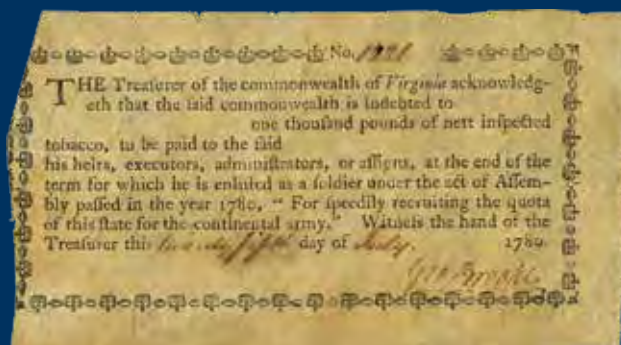 No. 1921
THE Treaſurer of the commonwealth of Virginia acknowledg-
eth that the ſaid commonwealth is indebted to
one thouſand pounds of nett inſpected
tobacco, to be paid to the ſaid
his heirs, executors, adminiſtrators, or aſſigns, at the end of the
term for which he is enliſted as a ſoldier under the act of Aſſem-
bly paſſed in the year 1780, “ For ſpeedily recruiting the quota
of this ſtate for the continental army.” Witneſs the hand of the
Treaſurer this twenty fifth day of July. 1780
Geo Brooke